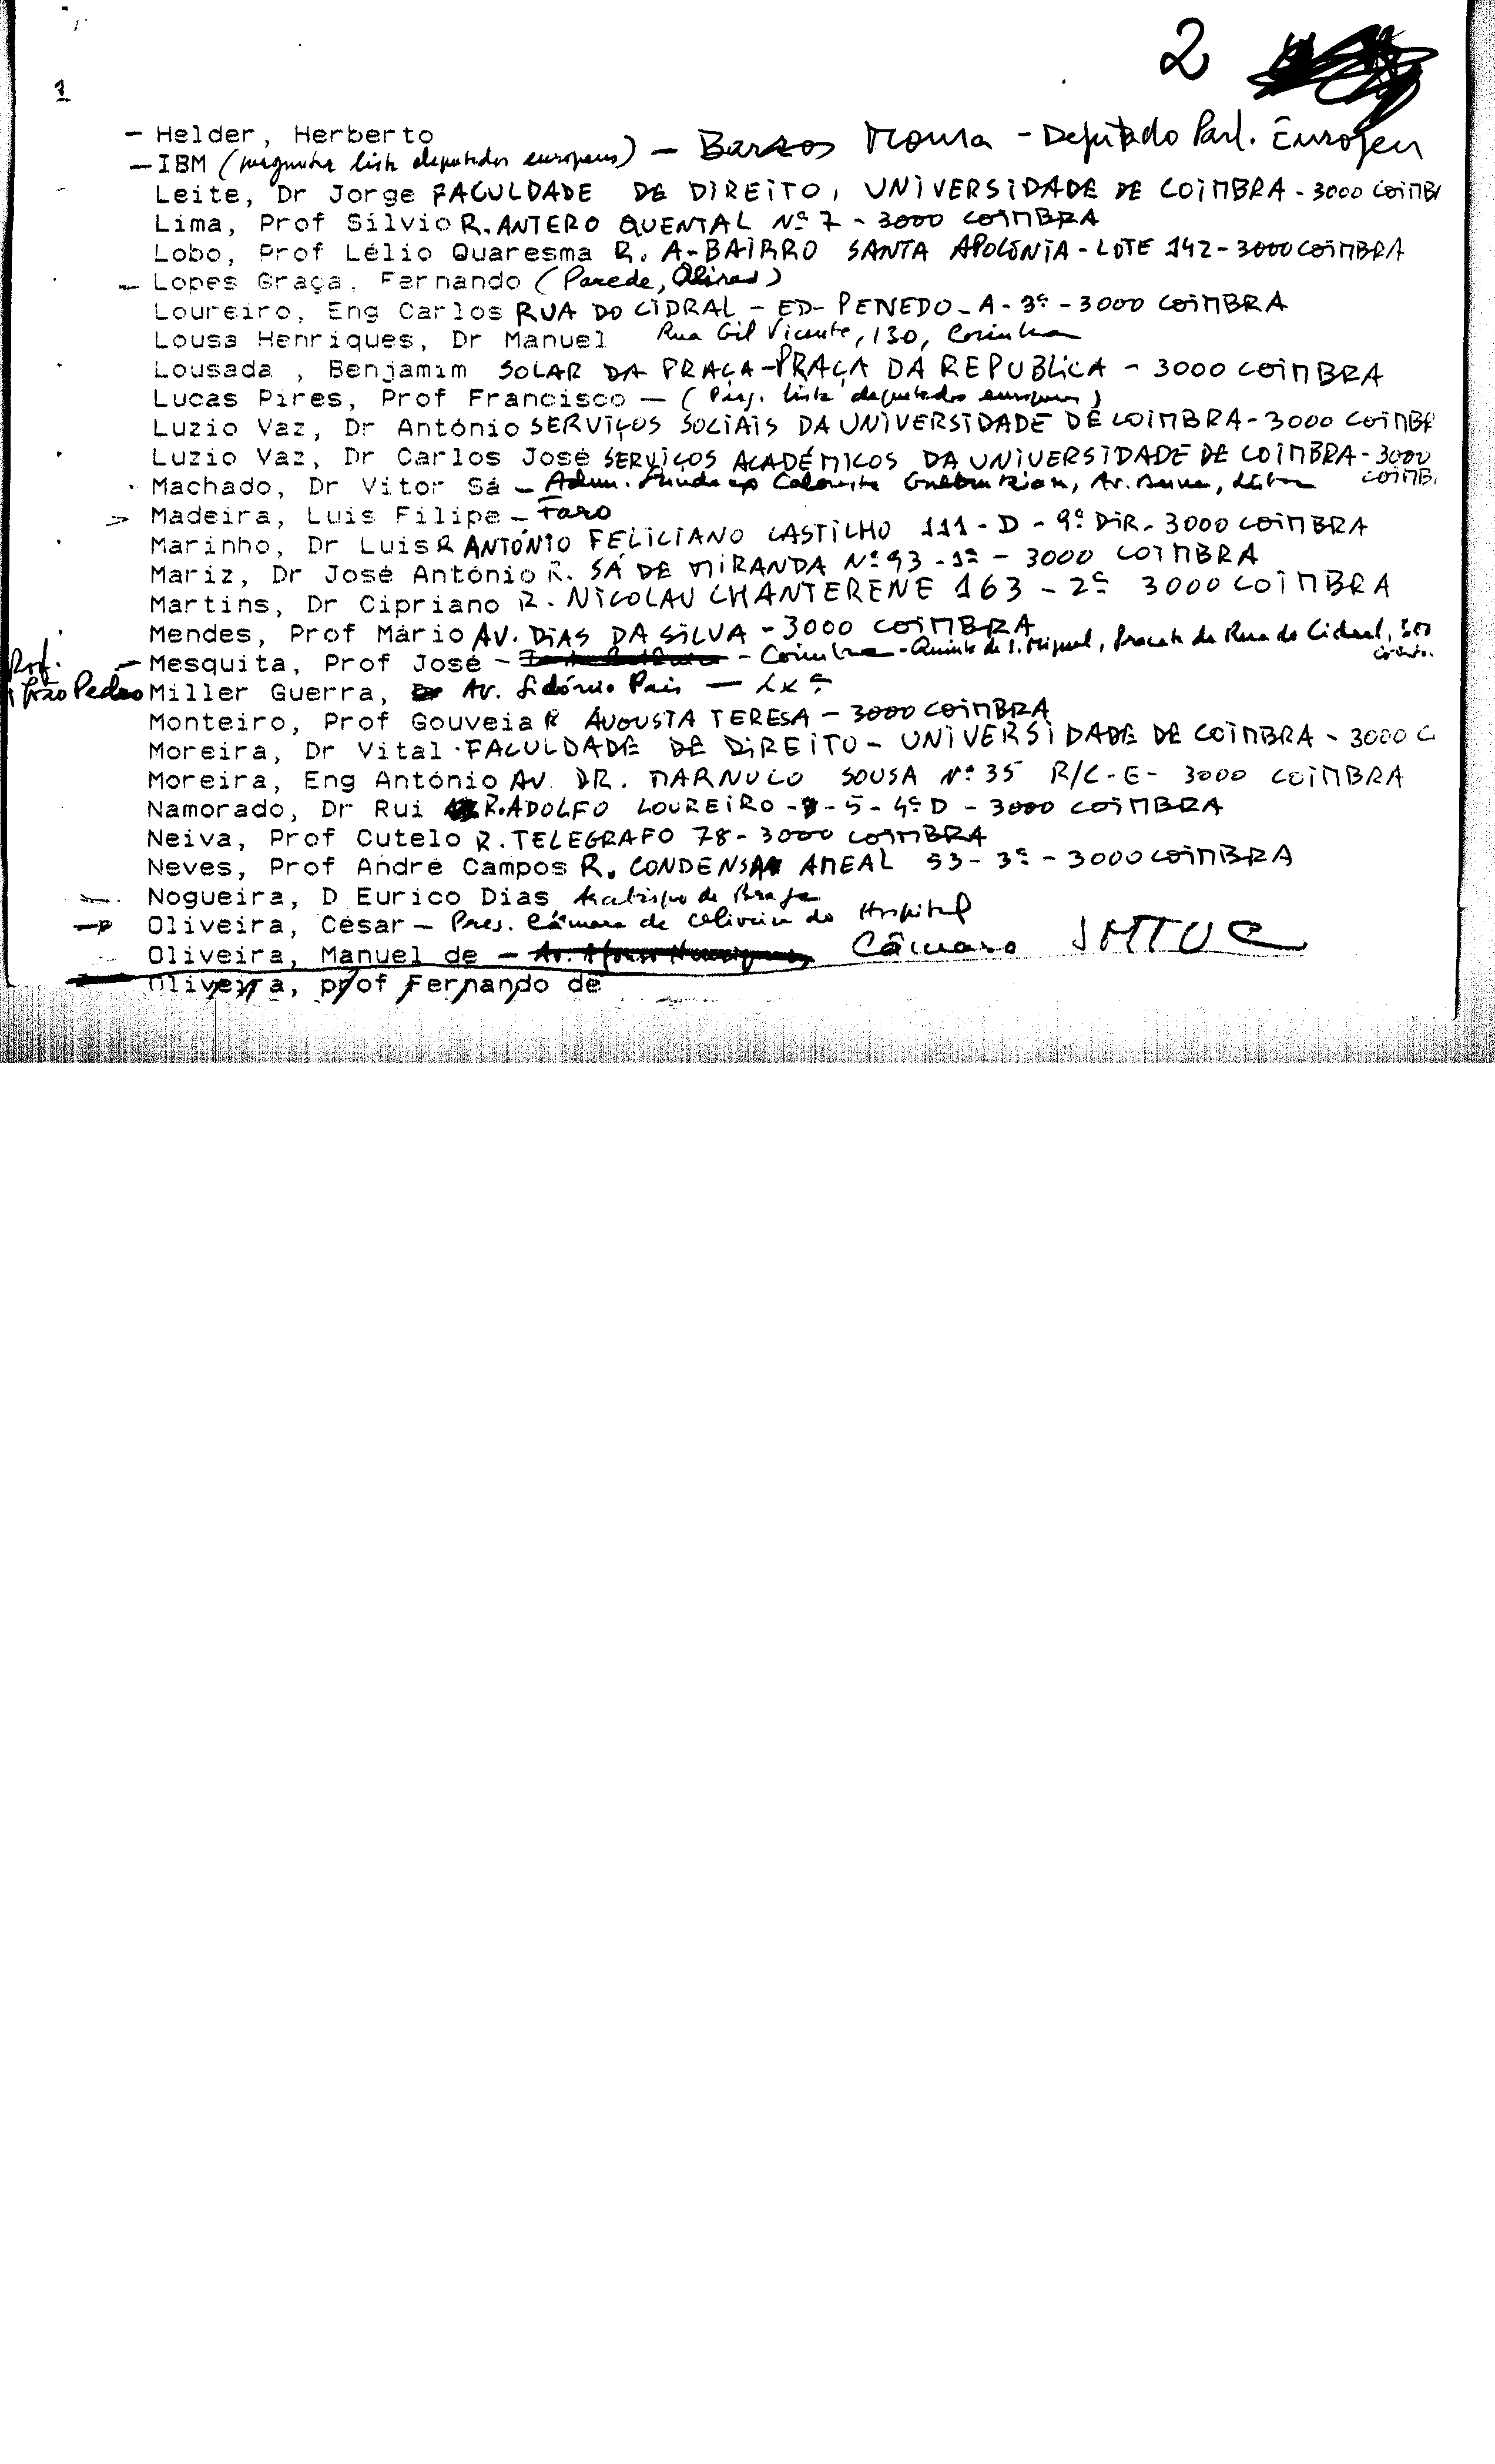 2
1
- Helder, Herberto
- IBM ( lista deputados europeus) - Barros Moura - Deputado Parl. Europeu
Leite, Dr Jorge FACULDADE DE DIREITO, UNIVERSIDADE DE COIMBRA - 3000 COIMB
Lima, Prof Sílvio R. ANTERO QUENTAL Nº 7 - 3000 COIMBRA
Lobo, Prof Lélio Quaresma R. A - BAIRRO SANTA APOLÓNIA - LOTE 142 - 3000 COIMBRA
- Lopes Graça, Fernando (Parede,
Loureiro, Eng Carlos RUA DO CIDRAL - ED - PENEDO - A - 3º - 3000 COIMBRA
Lousa Henriques, Dr Manuel Rua Gil Vicente, 130, Coimbra
Lousada , Benjamim SOLAR DA PRAÇA - PRAÇA DA REPUBLICA - 3000 COIMBRA
Lucas Pires, Prof Francisco - ( lista deputados europeus)
Luzio Vaz, Dr António SERVIÇOS SOCIAIS DA UNIVERSIDADE DE COIMBRA - 3000 COIMBR
Luzio Vaz, Dr Carlos José SERVIÇOS ACADÉMICOS DA UNIVERSIDADE DE COIMBRA - 3000 COIMB.
Machado, Dr Vitor Sá - Adm. Fundação Calouste Gulbenkian, Av. Berna, Lisboa
> Madeira, Luis Filipe - Faro
Marinho, Dr Luis R ANTÓNIO FELICIANO CASTILHO 111 - D - 9º DIR. 3000 COIMBRA
Mariz, Dr José António R. SÁ DE MIRANDA Nº 93 - 1º - 3000 COIMBRA
Martins, Dr Cipriano R. NICOLAU CHANTERENE 163 - 2º 3000 COIMBRA
Mendes, Prof Mário AV. DIAS DA SILVA - 3000 COIMBRA
- Mesquita, Prof José - - Coimbra - Quinta de S. Miguel, Praceta da Rua do Cidral,
Prof. João Pedro Miller Guerra, Av. Sidónio Pais - Lxª
Monteiro, Prof Gouveia R AUGUSTA TERESA - 3000 COIMBRA
Moreira, Dr Vital . FACULDADE DE DIREITO - UNIVERSIDADE DE COIMBRA - 3000 C
Moreira, Eng António AV. DR. MARNUCO SOUSA Nº 35 R/C - E - 3000 COIMBRA
Namorado, Dr Rui R. ADOLFO LOUREIRO - 5 - 4º D - 3000 COIMBRA
Neiva, Prof Cutelo R. TELEGRAFO 78 - 3000 COIMBRA
Neves, Prof André Campos R. CONDENSA AMEAL 53 - 3º - 3000 COIMBRA
Nogueira, D Eurico Dias de Braga
Oliveira, César - Pres. Câmara de Oliveira do Hospital
Oliveira, Manuel de - Câmara SMTUC
Oliveira, prof Fernando de